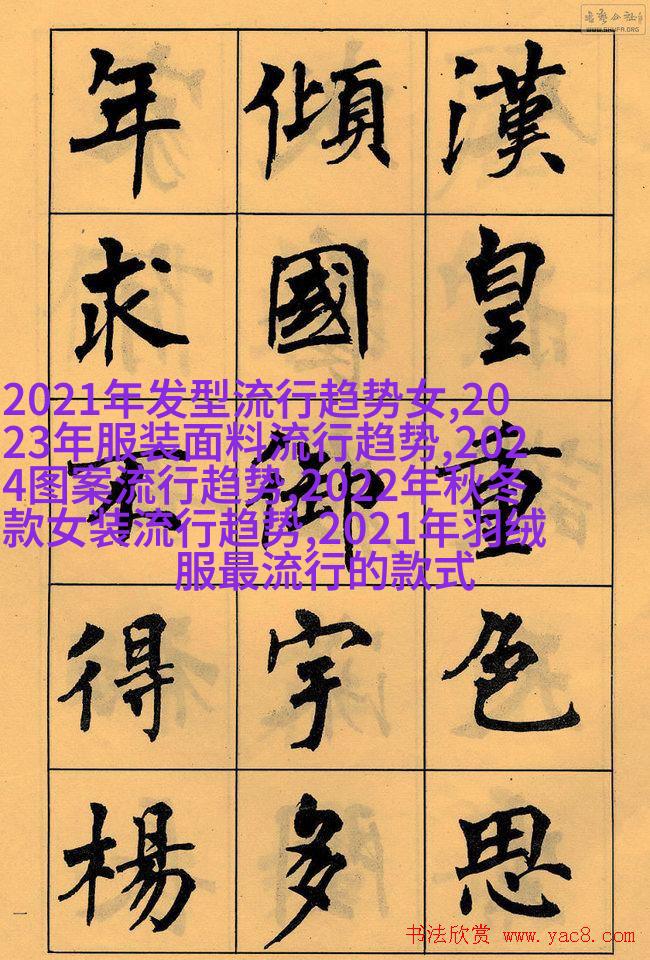 漢皇重色思
傾國御宇多
年求不得楊
2021年发型流行趋势女,20
23年服装面料流行趋势,202
4图案流行趋势,2022年秋冬
款女装流行趋势,2021年羽绒
服最流行的款式
WWW.SHUFA.ORG
一
书法欣赏 www.yac8.com